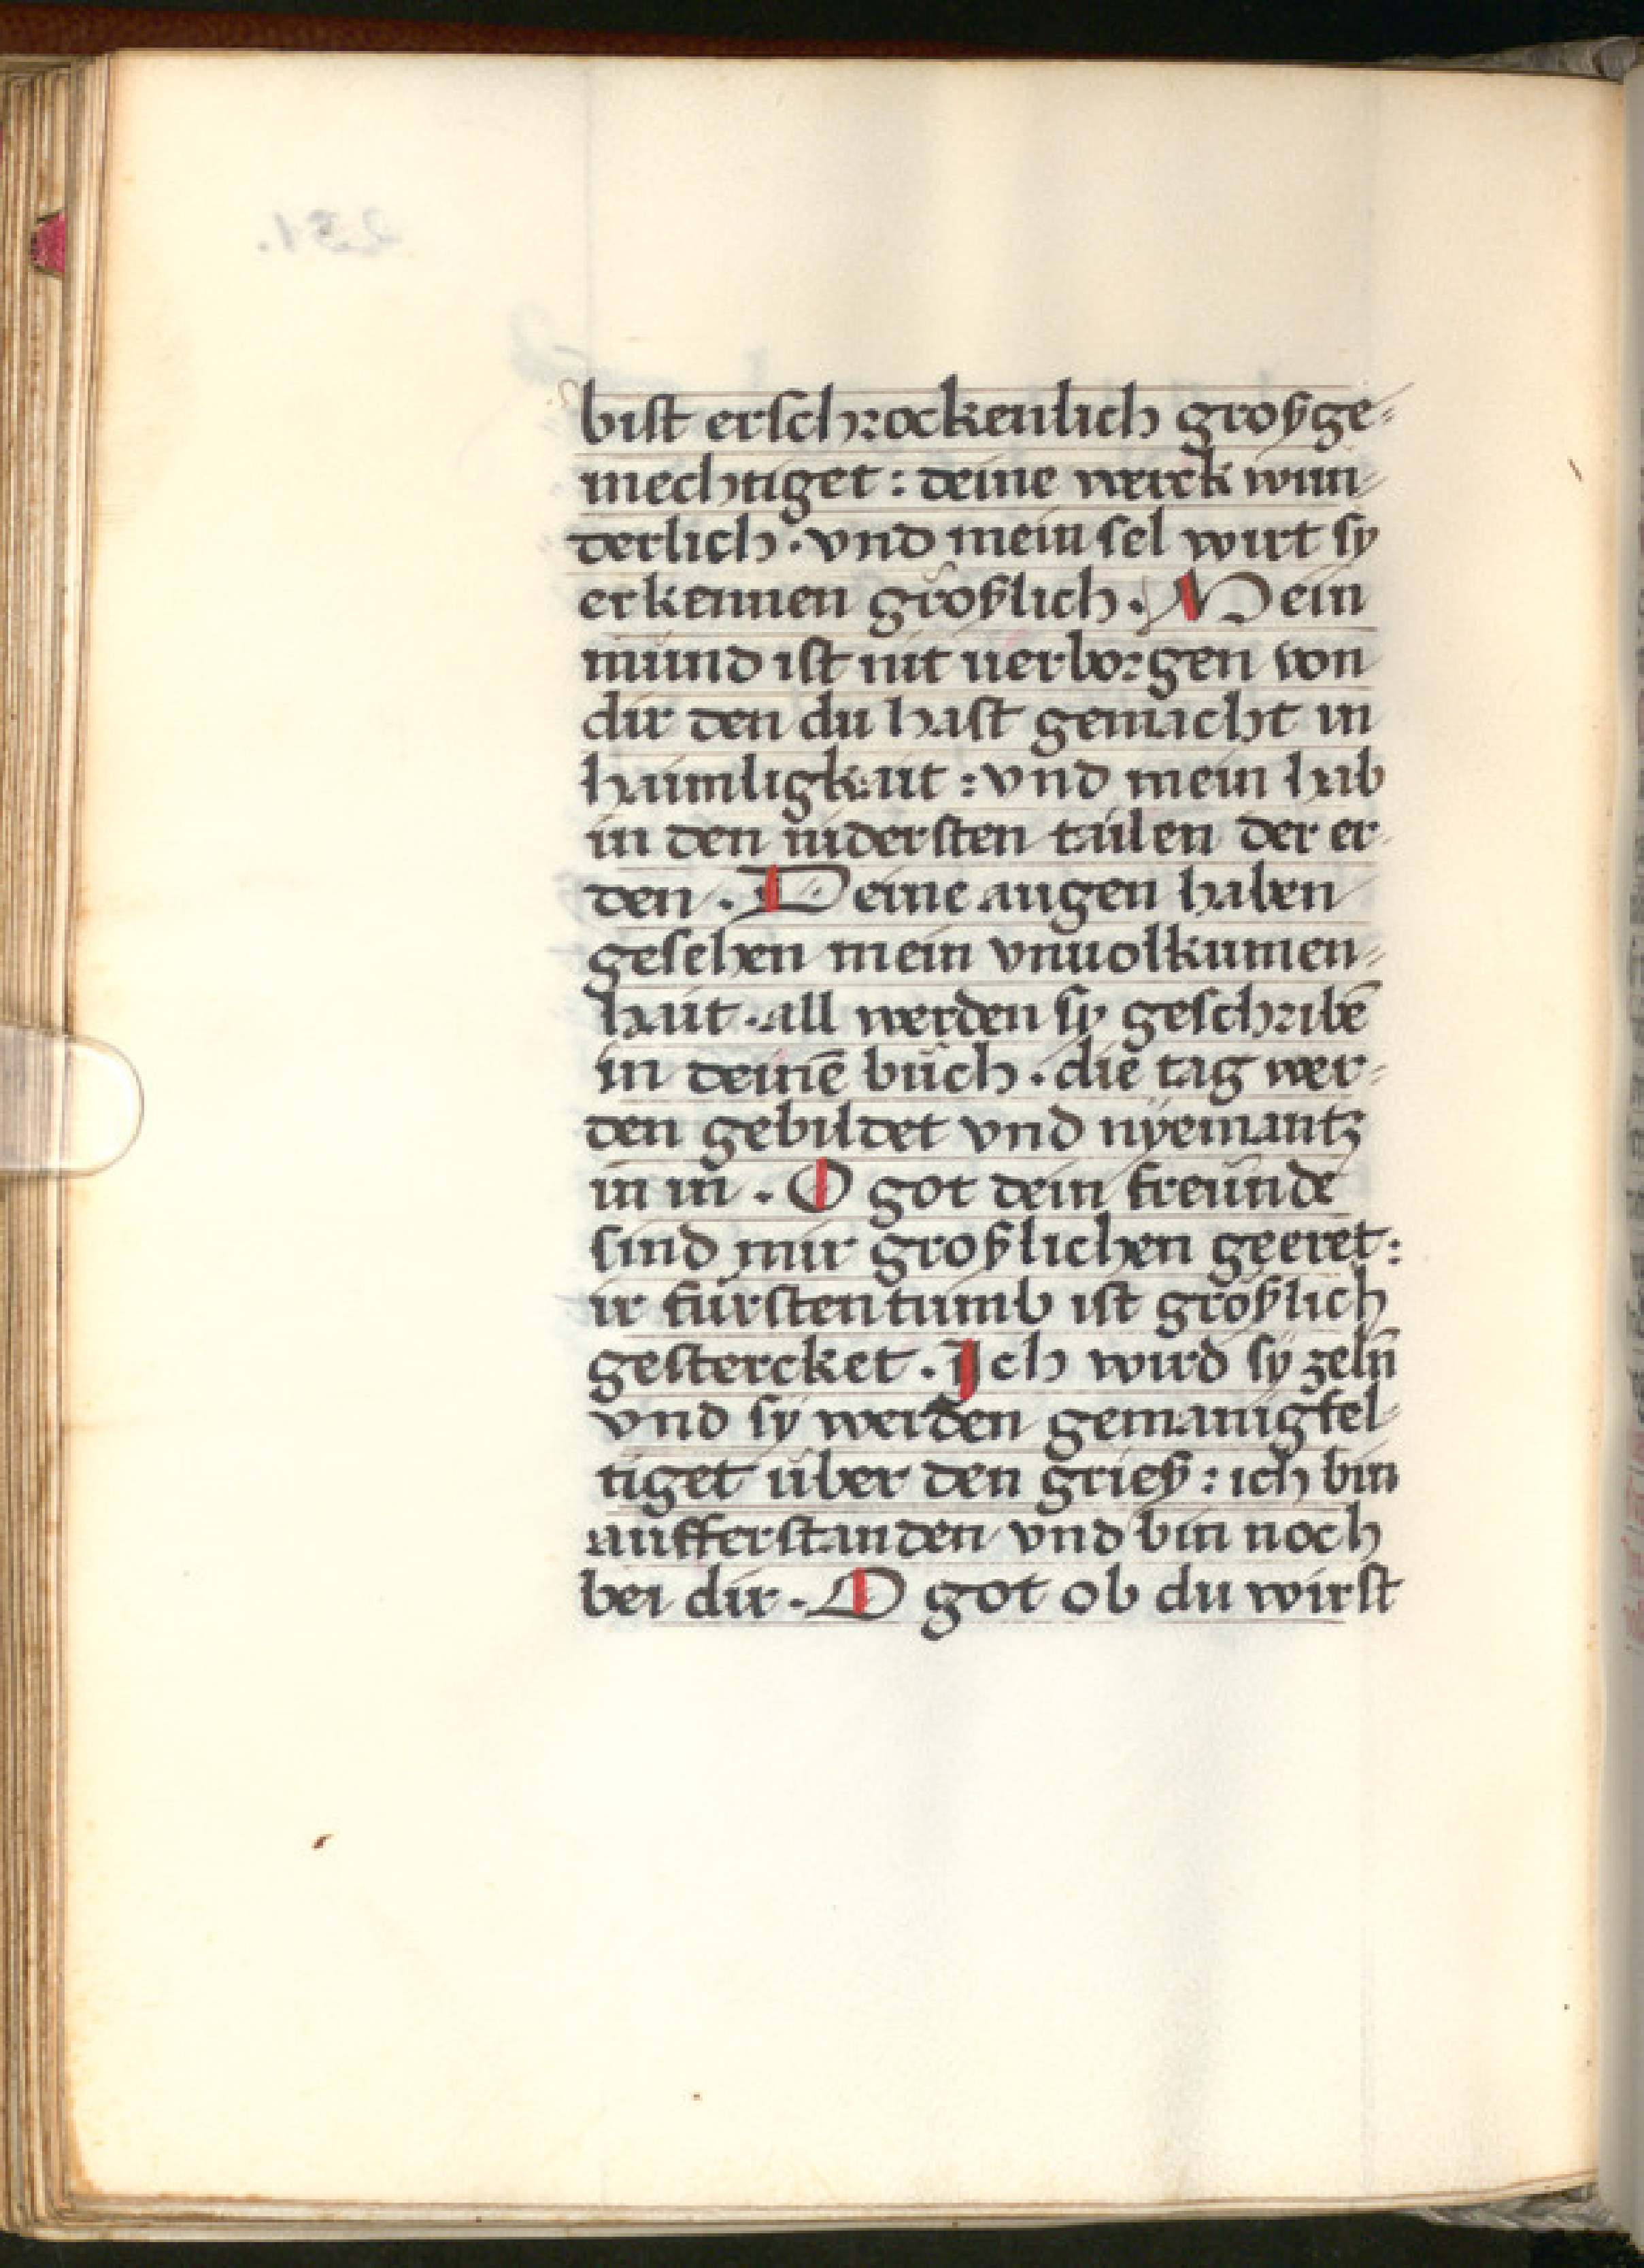 bist erschrockenlich großge-
mechtiget : deine werck wun-
derlich · vnd mein sel wirt sy
erkennen größlich · Mein
mund ist nit uerborgen von
dir den du hast gemacht in
haimligkait : vnd mein leib
in den nidersten tailen der er-
den · Deine augen haben
gesehen mein vnuolkumen-
hait · all werden sy geschribē
in deinē bůch · die tag wer-
den gebildet vnd nyemantz
in in · O got dein freunde
sind mir größlichen geeret :
ir fürstentumb ist größlich
gestercket · Ich wird sy zeln
vnd sy werden gemanigfel-
tiget über den grieß : ich bin
aufferstanden vnd bin noch
bei dir · O got ob du wirst